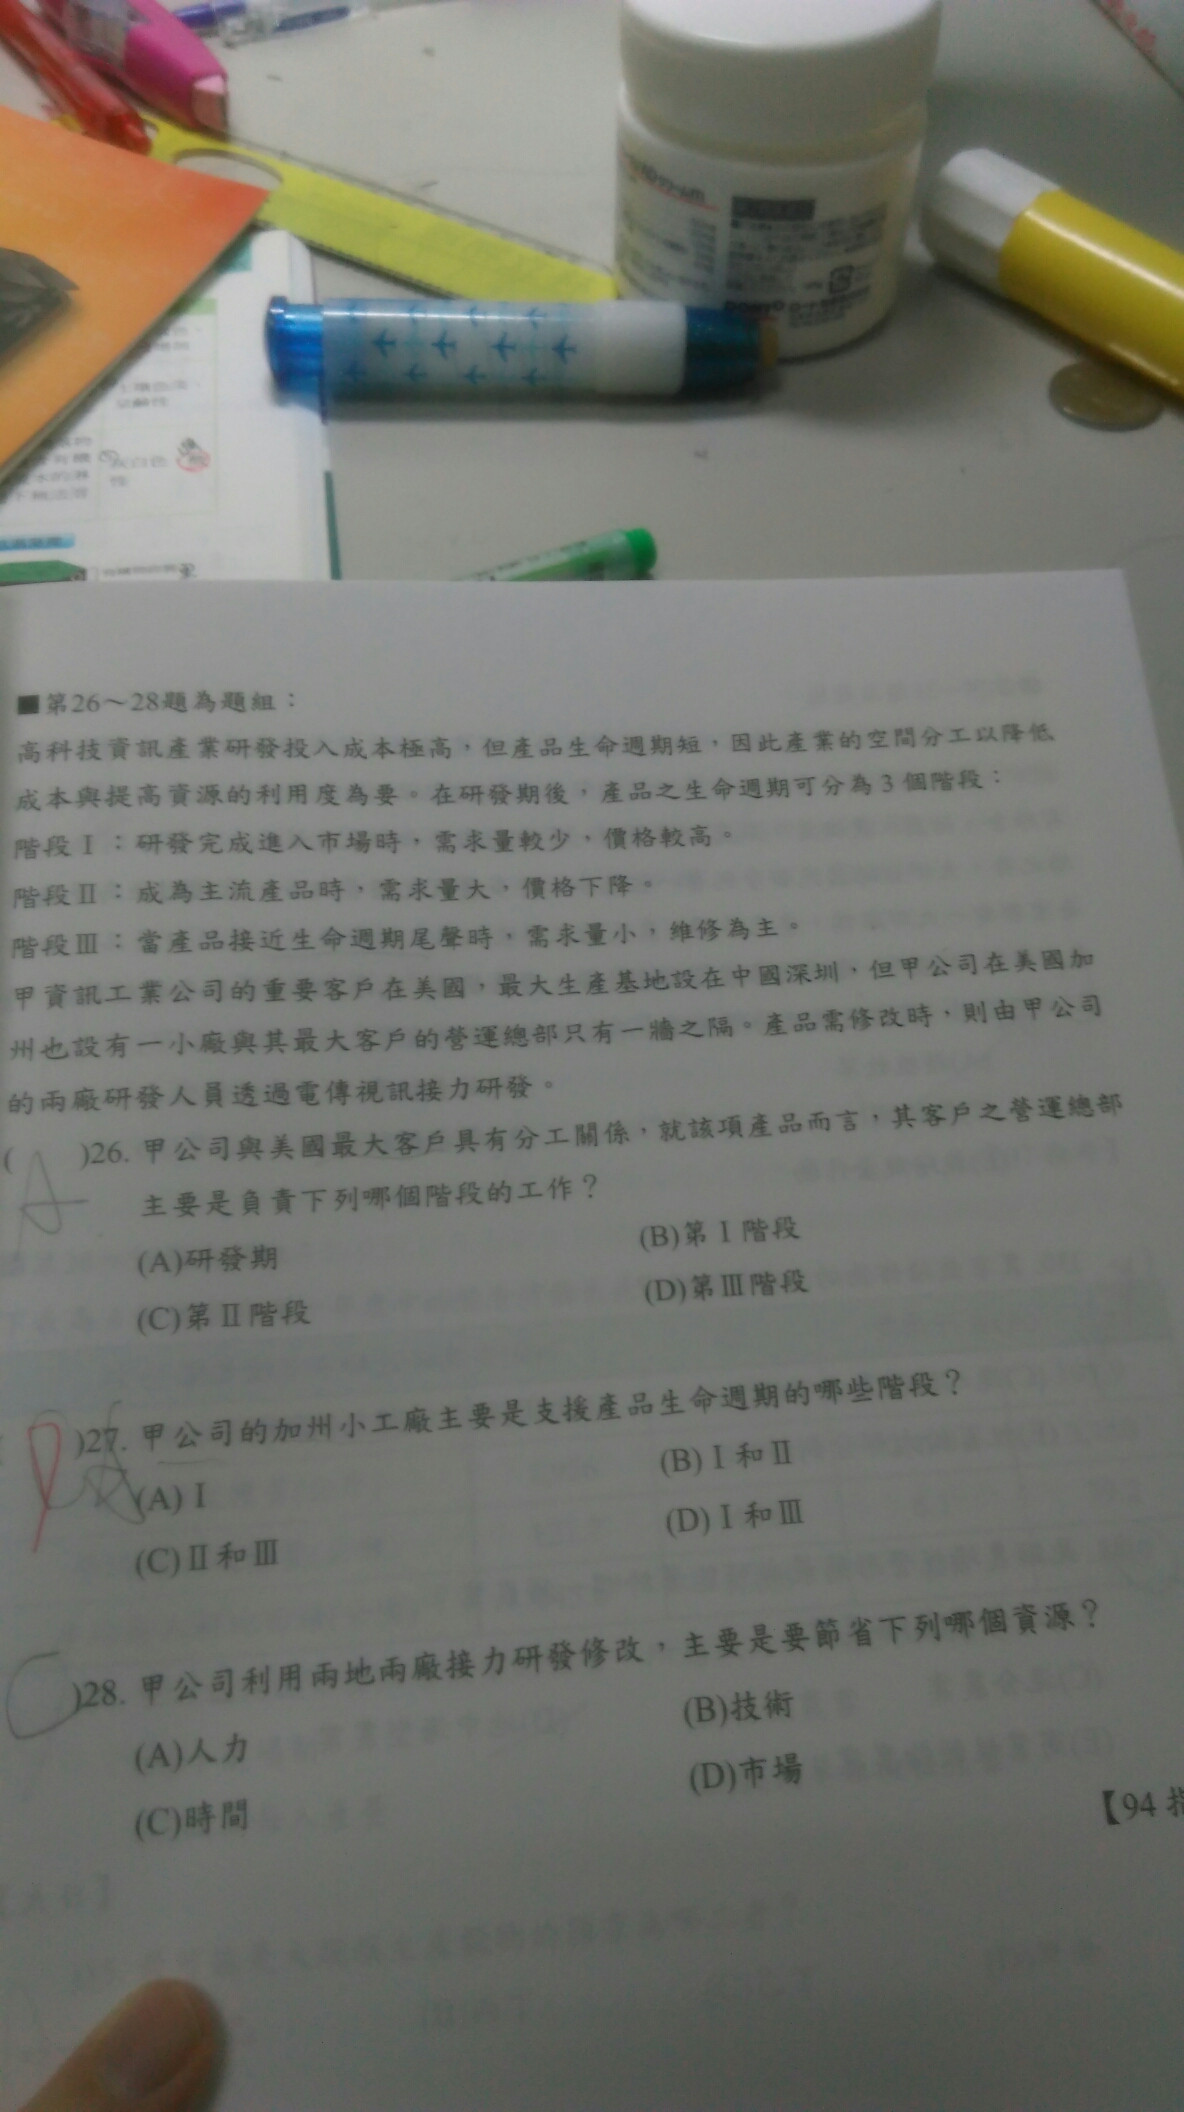 ■第26～28題為題組：
高科技資訊產業研發投入成本極高，但產品生命週期短，因此產業的空間分工以降低
成本與提高資源的利用度為要。在研發期後，產品之生命週期可分為3個階段：
階段Ⅰ：研發完成進入市場時，需求量較少，價格較高。
階段Ⅱ：成為主流產品時，需求量大，價格下降。
階段Ⅲ：當產品接近生命週期尾聲時，需求量小，維修為主。
甲資訊工業公司的重要客戶在美國，最大生產基地設在中國深圳，但甲公司在美國加
州也設有一小廠與其最大客戶的營運總部只有一牆之隔。產品需修改時，則由甲公司
的兩廠研發人員透過電傳視訊接力研發。
( A )26. 甲公司與美國最大客戶具有分工關係，就該項產品而言，其客戶之營運總部
主要是負責下列哪個階段的工作？
(A)研發期 (B)第Ⅰ階段
(C)第Ⅱ階段 (D)第Ⅲ階段
)27. 甲公司的加州小工廠主要是支援產品生命週期的哪些階段？
(A)Ⅰ (B)Ⅰ和Ⅱ
(C)Ⅱ和Ⅲ (D)Ⅰ和Ⅲ
C )28. 甲公司利用兩地兩廠接力研發修改，主要是要節省下列哪個資源？
(A)人力 (B)技術
(C)時間 (D)市場
【94 指